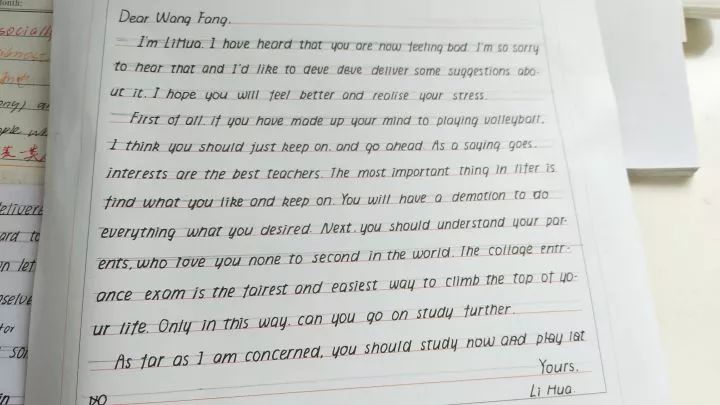 onth:
socially
Dear Wang Fang.
I'm LiHua. I have heard that you are now feeling bad. I'm so sorry
to hear that and I'd like to deve deve deliver some suggestions abo-
ut it. I hope you will feel better and realise your stress.
First of all, if you have made up your mind to playing volleyball,
I think you should just keep on, and go ahead. As a saying goes,
interests are the best teachers. The most important thing in lifer is
find what you like and keep on. You will have a demotion to do
everything what you desired. Next, you should understand your par-
ents, who love you none to second in the world. The collage entr-
ance exam is the fairest and easiest way to climb the top of yo-
ur life. Only in this way, can you go on study further.
As far as I am concerned, you should study now and play lat
Yours,
Li Hua.